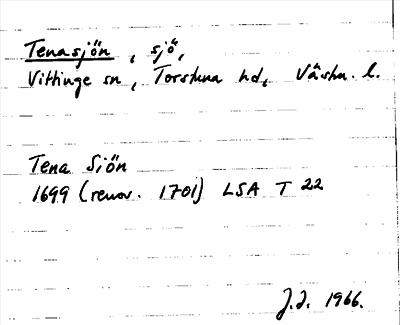 Tenasjön, sjö,
Vittinge sn, Torstuna hd, Västm. l.
Tena Siön
1699 (renov. 1701) LSA T 22
J.I. 1966.